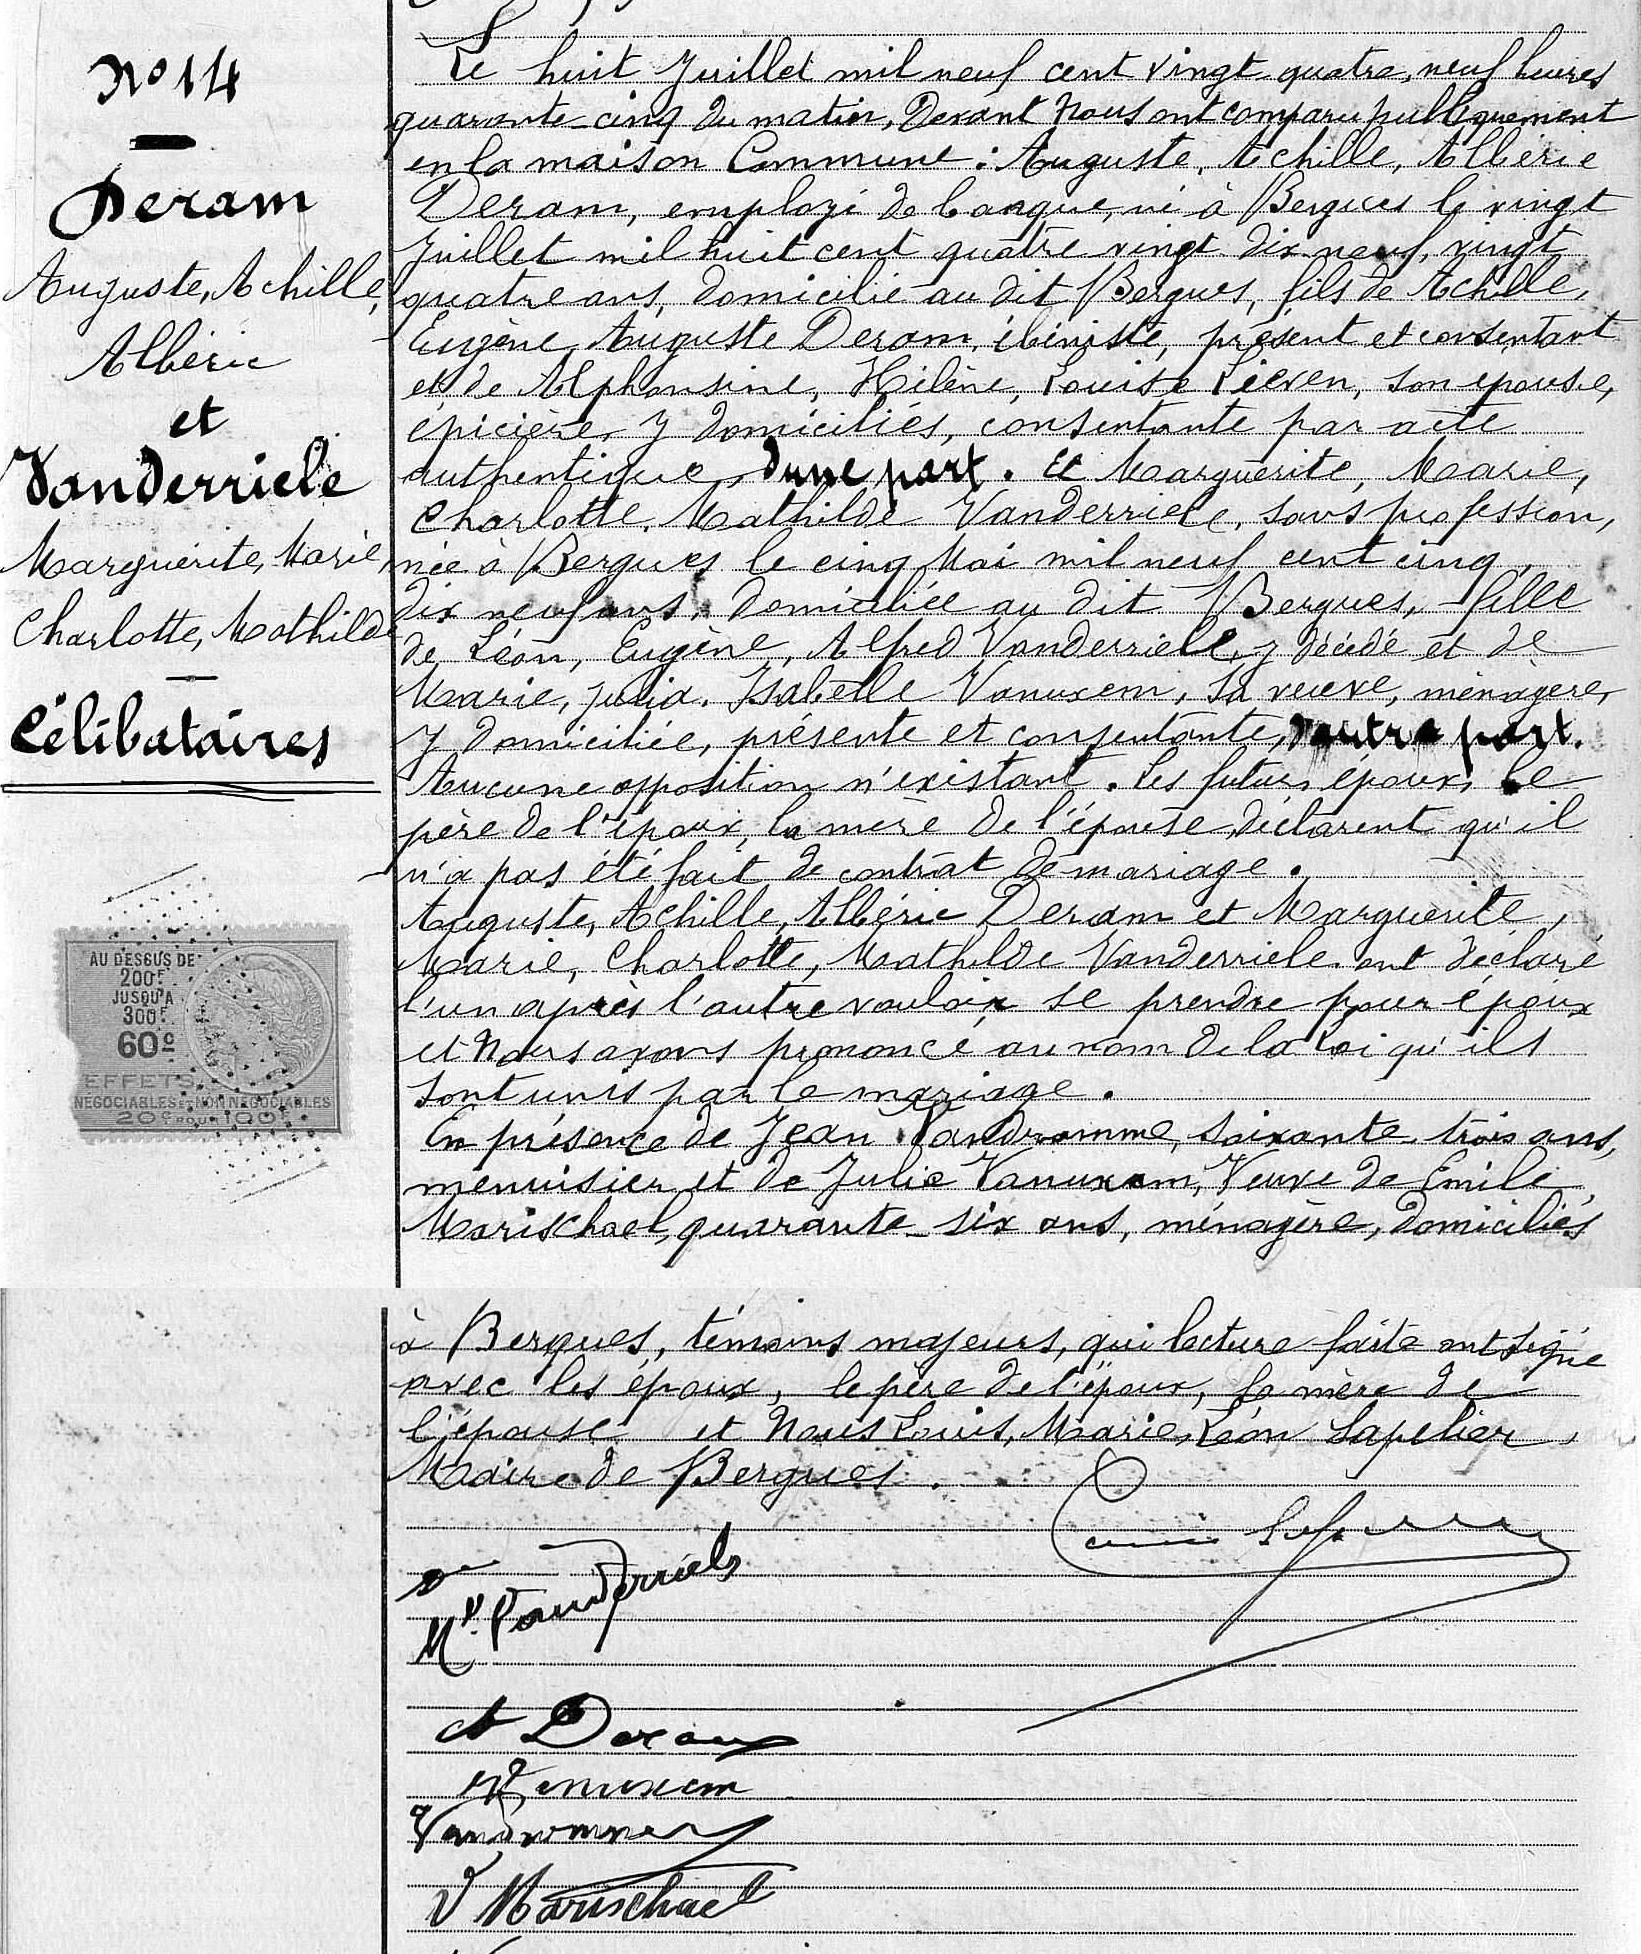 N° 14
Deram
Auguste, Achille,
Albéric
et
Vanderriele
Marguerite, Marie,
Charlotte, Mathilde
Célibataires
AU DESSUS DE
200F
JUSQU'A
300F
60c
EFFETS
NEGOCIABLES ET NON NEGOCIABLES
20c POUR 100F
Le huit Juillet mil neuf cent vingt quatre, neuf heures
quarante-cinq du matin, Devant Nous ont comparu publiquement
en la maison Commune : Auguste, Achille, Albéric
Deram, employé de banque, né à Bergues le vingt
Juillet mil huit cent quatre vingt dix neuf, vingt
quatre ans, domicilié au dit Bergues, fils de Achille,
Eugène, Auguste Deram, ébéniste, présent et consentant
et de Alphonsine, Hélène, Louise Lieven, son épouse,
épicière, y domiciliés, consentante par acte
authentique, d'une part. Et Marguerite, Marie,
Charlotte, Mathilde Vanderriele, sans profession,
née à Bergues le cinq Mai mil neuf cent cinq,
dix neuf ans, domiciliée au dit Bergues, fille
de Léon, Eugène, Alfred Vanderriele, y décédé et de
Marie, Julia, Isabelle Vanuxem, sa veuve, ménagère,
y domiciliée, présente et consentante, d'autre part.
Aucune opposition n'existant. Les futurs époux, le
père de l'époux, la mère de l'épouse, déclarent qu'il
n'a pas été fait de contrat de mariage.
Auguste, Achille, Albéric Deram et Marguerite,
Marie, Charlotte, Mathilde Vanderriele ont déclaré
l'un après l'autre vouloir se prendre pour époux
et Nous avons prononcé au nom de la Loi qu'ils
sont unis par le mariage.
En présence de Jean Vandromme, soixante-trois ans,
menuisier et de Julie Vanuxem, Veuve de Emile
Marischael, quarante-six ans, ménagère, domiciliés
à Bergues, témoins majeurs, qui lecture faite ont signé
avec les époux, le père de l'époux, la mère de
l'épouse et Nous Louis, Marie, Léon Sapelier,
Maire de Bergues.
M. Vanderriele
A Deram
Vanuxem
Vandromme
V Marischael